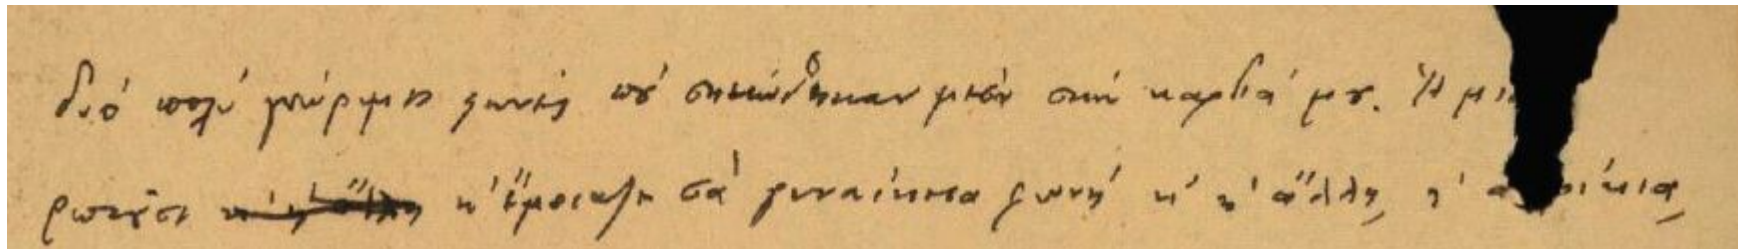 δυό πολύ γνώριμες φωνές πού σηκώθηκαν μέσα στήν καρδιά μου. Ἡ
ρωτοῦσε κ' ἔμοιαζε σά γυναίκεια φωνή κ' ἡ ἄλλη, ἡ